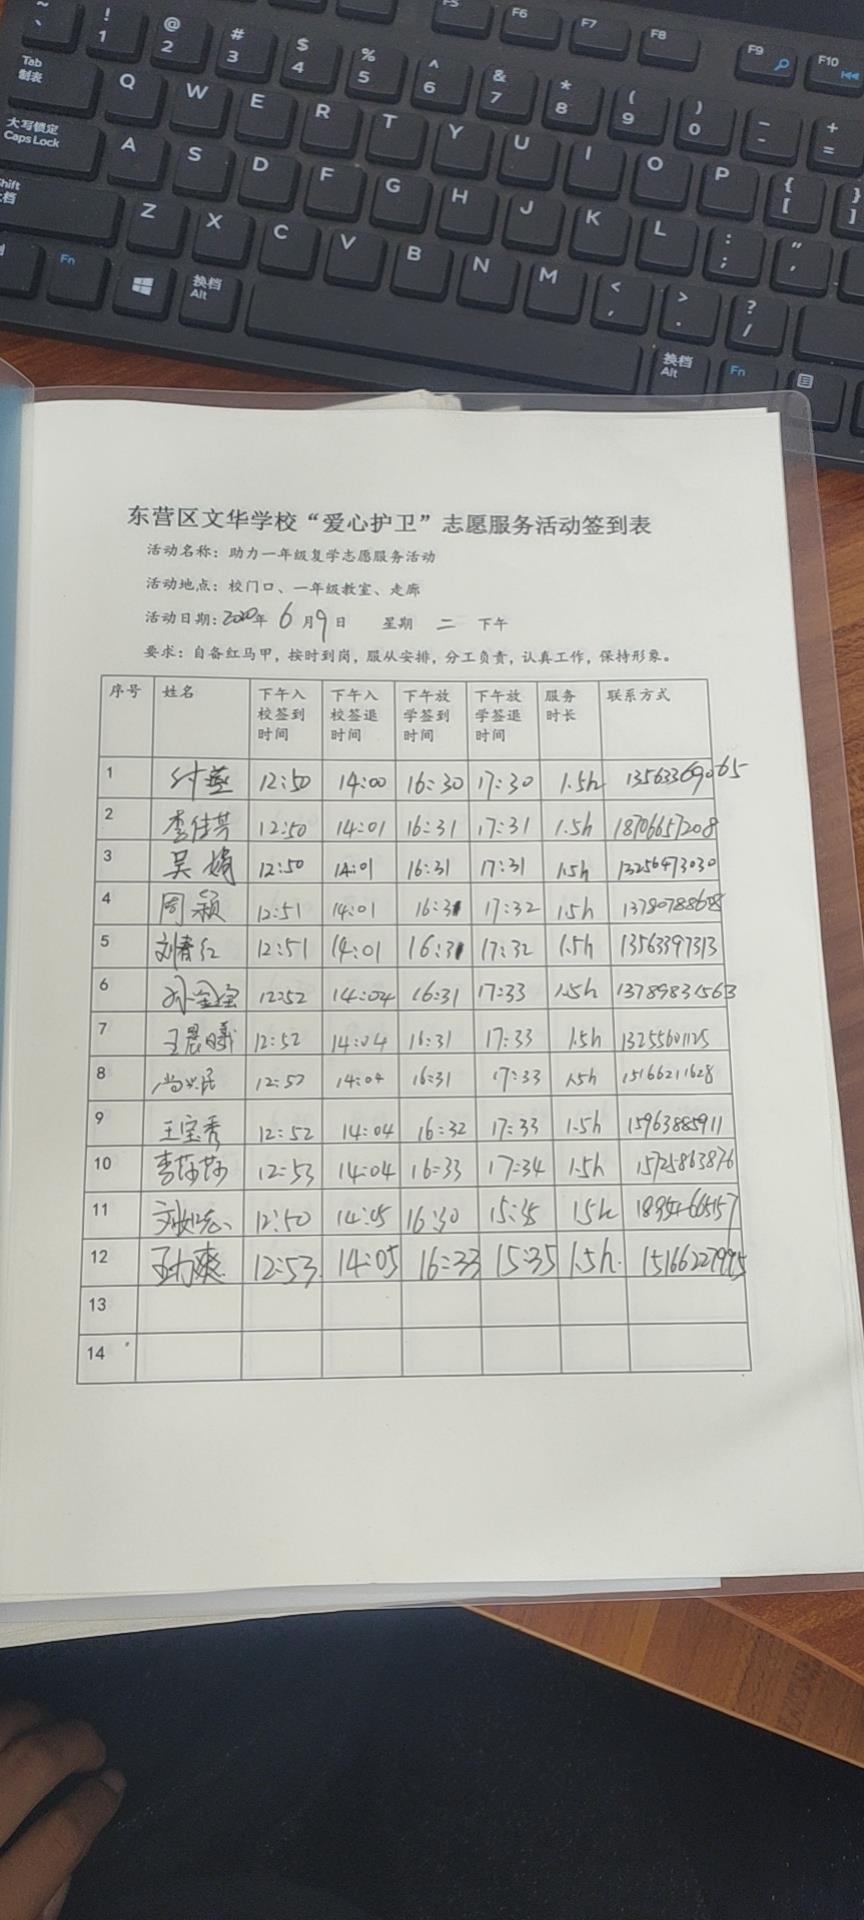 ~ ! 1 @ 2 # 3 $ 4 % 5 ^ 6 & 7 * 8 ( 9 ) 0 _ - + =
F5 F6 F7 F8 F9 F10
Tab 制表 Q W E R T Y U I O P { [ } ]
大写锁定 Caps Lock A S D F G H J K L : ; " '
Shift Z X C V B N M < , > . ? /
Fn 换档 Alt 换档 Alt Fn
东营区文华学校“爱心护卫”志愿服务活动签到表
活动名称：助力一年级复学志愿服务活动
活动地点：校门口、一年级教室、走廊
活动日期：2020年 6月9日 星期 二 下午
要求：自备红马甲，按时到岗，服从安排，分工负责，认真工作，保持形象。
序号 姓名 下午入校签到时间 下午入校签退时间 下午放学签到时间 下午放学签退时间 服务时长 联系方式
1 付燕 12:50 14:00 16:30 17:30 1.5h 13563369065
2 李佳芳 12:50 14:01 16:31 17:31 1.5h 18706657208
3 吴娟 12:50 14:01 16:31 17:31 1.5h 13256473030
4 周颖 12:51 14:01 16:31 17:32 1.5h
5 刘春红 12:51 14:01 16:31 17:32 1.5h 13563397313
6 12:52 14:04 16:31 17:33 1.5h 13789831563
7 王晨曦 12:52 14:04 16:31 17:33 1.5h 13255601125
8 12:52 14:04 16:31 17:33 1.5h 15166211628
9 王宝秀 12:52 14:04 16:32 17:33 1.5h 15963885911
10 李莎莎 12:53 14:04 16:33 17:34 1.5h 15725863876
11 12:50 14:05 16:30 15:35 1.5h
12 12:53 14:05 16:33 15:35 1.5h. 15166227995
13
14